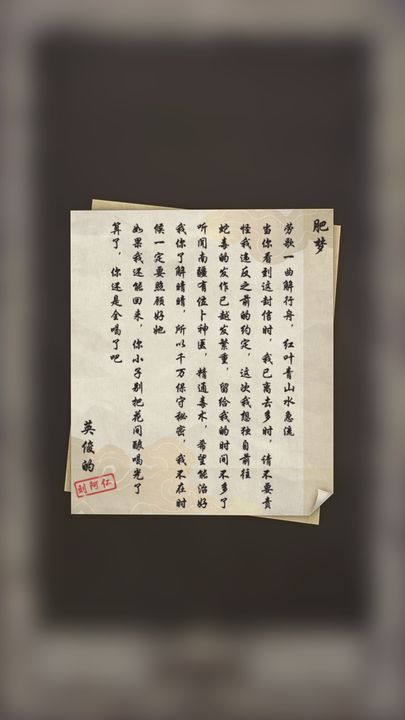 肥梦
劳歌一曲解行舟，红叶青山水急流
当你看到这封信时，我已离去多时，请不要责
怪我违反之前的约定，这次我想独自前往
蛇毒的发作已越发繁重，留给我的时间不多了
听闻南疆有位卜神医，精通毒术，希望能治好
我你了解晴晴，所以千万保守秘密，我不在时
候一定要照顾好她
如果我还能回来，你小子别把花间酿喝光了
算了，你还是全喝了吧
英俊的
刘珂仁